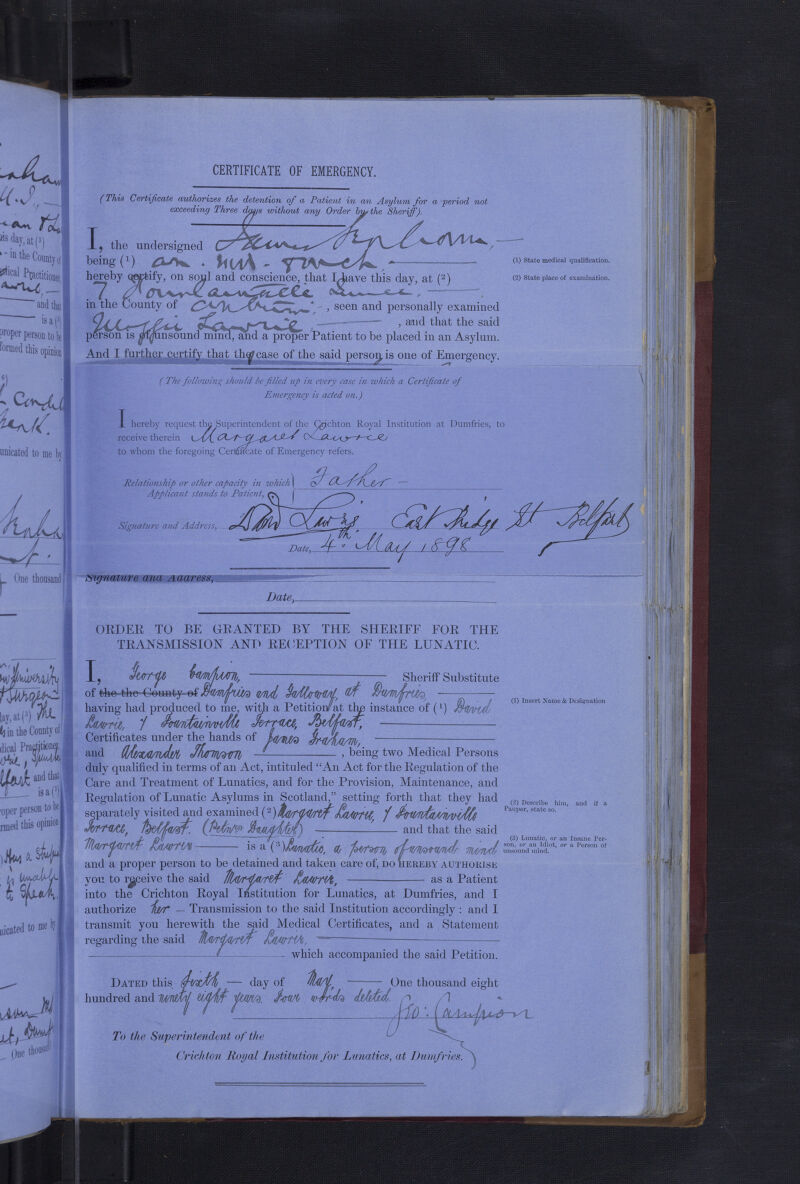 CERTIFICATE OF EMERGENCY.
(This Certificate authorizes the detention of a Patient in an Asylum for a period not
exceeding Three days without any Order by the Sheriff).
I, the undersigned James Graham, —
being (1) an . M.D. —
(1) State medical qualification.
hereby certify, on soul and conscience, that I have this day, at (2)
(2) State place of examination.
7 Fountainville Terrace.
in the County of Antrim - , seen and personally examined
Lawrie , and that the said
person is of unsound mind, and a proper Patient to be placed in an Asylum.
And I further certify that the case of the said person is one of Emergency.
(The following should be filled up in every case in which a Certificate of
Emergency is acted on.)
I hereby request the Superintendent of the Crichton Royal Institution at Dumfries, to
receive therein Margaret Lawrie
to whom the foregoing Certificate of Emergency refers.
Relationship or other capacity in which
Applicant stands to Patient, Father —
Signature and Address, David Lawrie East Bridge St Belfast
Date, 4th. May 1898
Signature and Address,
Date,
ORDER TO BE GRANTED BY THE SHERIFF FOR THE
TRANSMISSION AND RECEPTION OF THE LUNATIC.
I, George Campion, Sheriff Substitute
of the the County of Dumfries and Galloway, at Dumfries
having had produced to me, with a Petition at the instance of (1) David
(1) Insert Name & Designation
Lawrie, 7 Fountainville Terrace, Belfast,
Certificates under the hands of James Graham,
and Alexander Thomson , being two Medical Persons
duly qualified in terms of an Act, intituled "An Act for the Regulation of the
Care and Treatment of Lunatics, and for the Provision, Maintenance, and
Regulation of Lunatic Asylums in Scotland," setting forth that they had
separately visited and examined (2) Margaret Lawrie, 7 Fountainville
(2) Describe him, and if a
Pauper, state so.
Terrace, Belfast. (Petnrs Daughter) and that the said
Margaret Lawrie is a (3) Lunatic, a person of unsound mind
(3) Lunatic, or an Insane Per-
son, or an Idiot, or a Person of
unsound mind.
and a proper person to be detained and taken care of, DO HEREBY AUTHORISE
you to receive the said Margaret Lawrie, as a Patient
into the Crichton Royal Institution for Lunatics, at Dumfries, and I
authorize her — Transmission to the said Institution accordingly : and I
transmit you herewith the said Medical Certificates, and a Statement
regarding the said Margaret Lawrie,
which accompanied the said Petition.
DATED this Sixth — day of May, One thousand eight
hundred and ninety eight years. Four words deleted.
Geo: Campion
To the Superintendent of the
Crichton Royal Institution for Lunatics, at Dumfries.